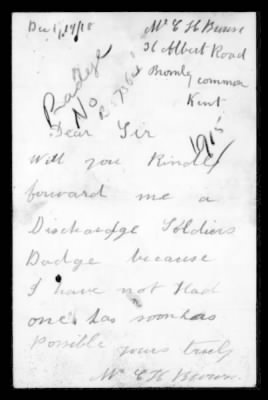 Dec 1, 19/18
Mr E H Brown
36 Albert Road
Bromley common
Kent
Badge
No
1915
Dear Sir
Will you Kindly
forward me a
Dischardge Soldiers
Badge because
I have not Had
one has soon has
Possible yours truly
Mr E H Brown